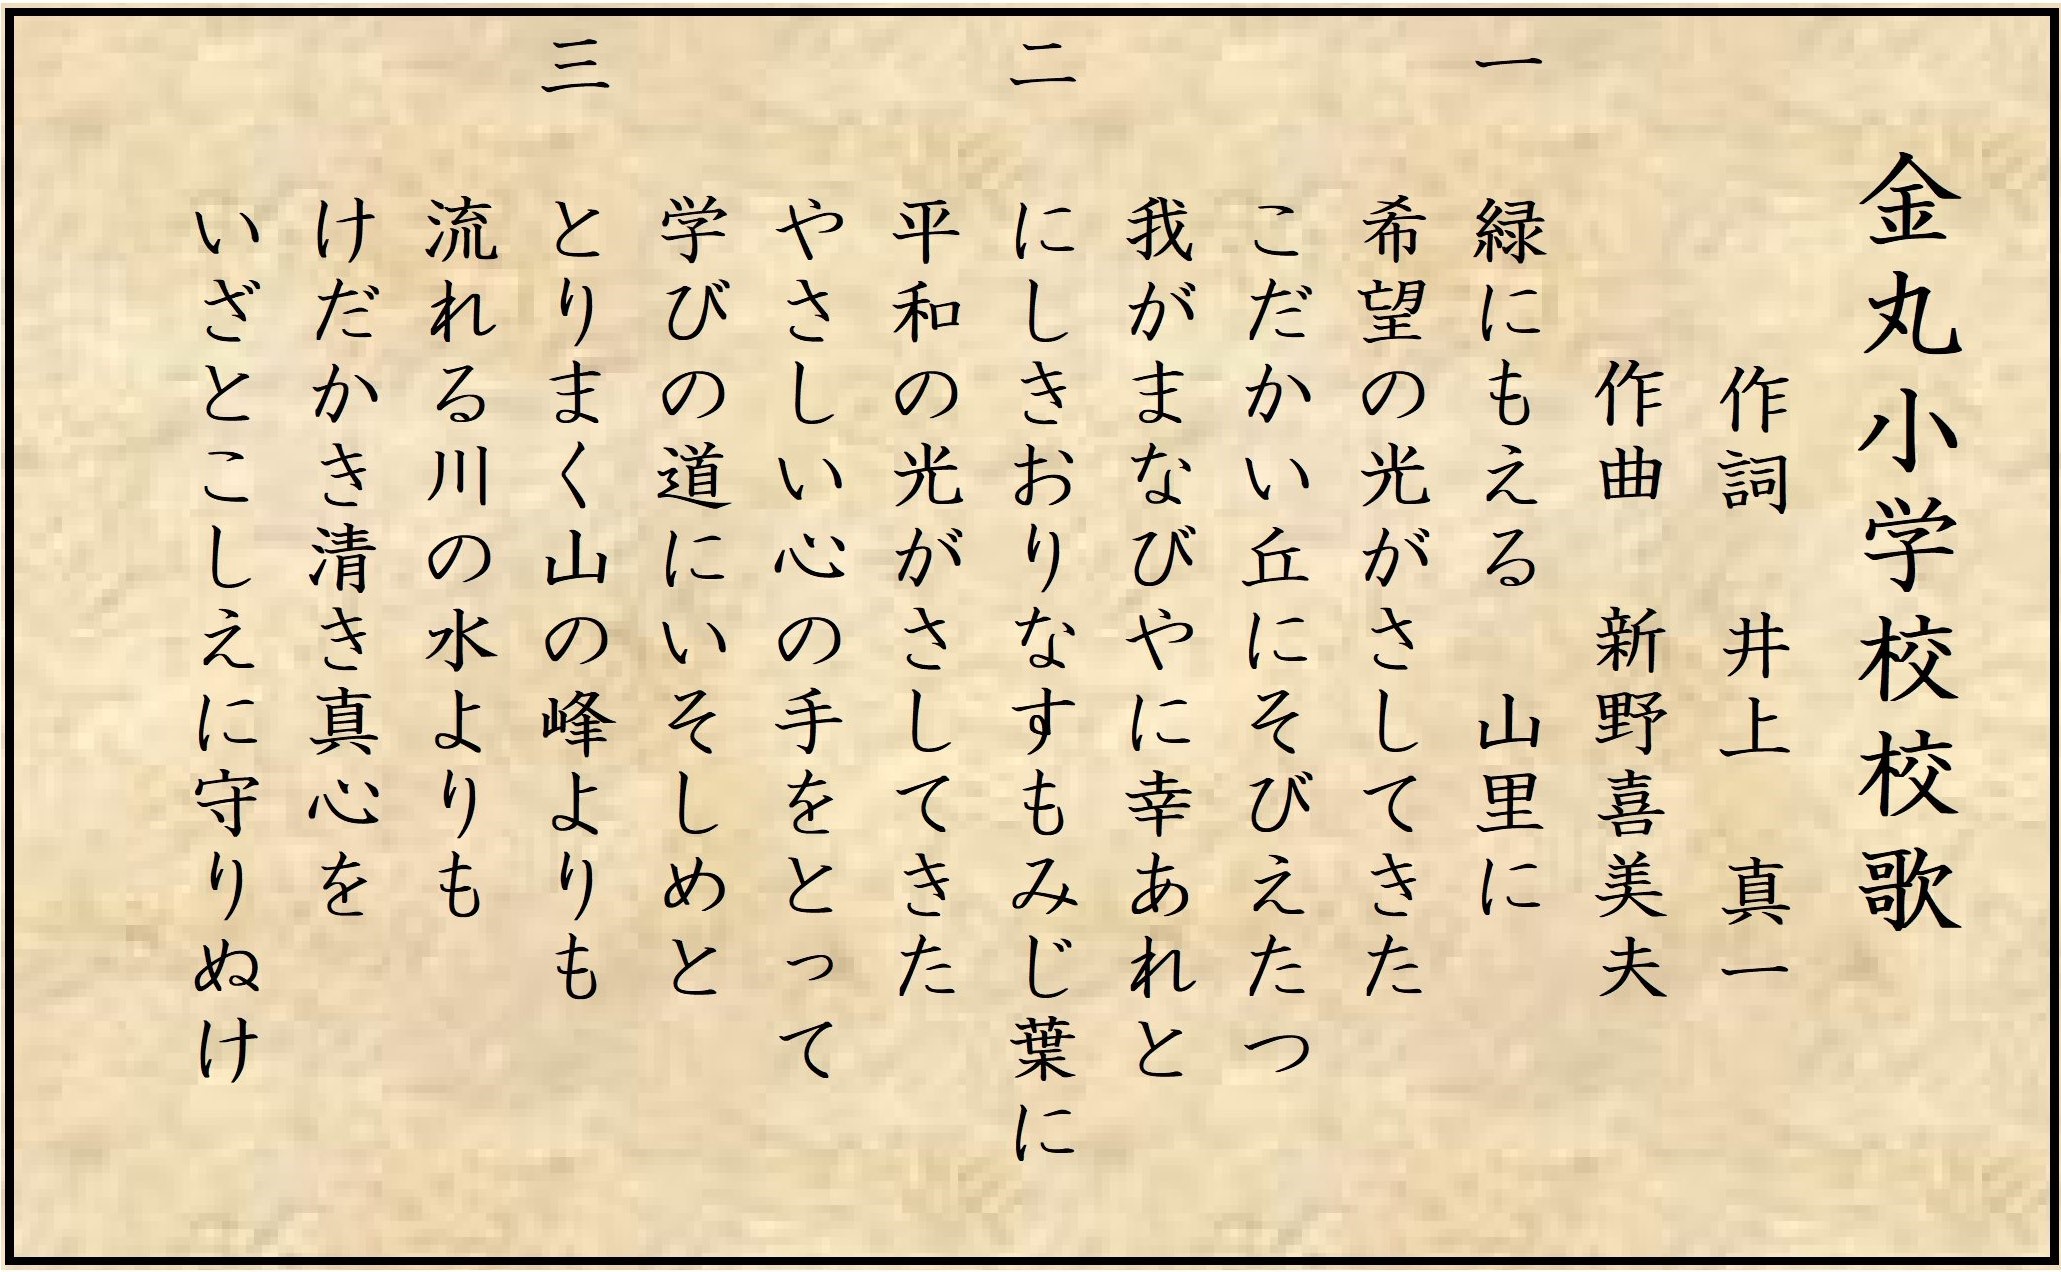 金丸小学校校歌
作詞　井上　真一
作曲　新野喜美夫
一　緑にもえる　山里に
希望の光がさしてきた
こだかい丘にそびえたつ
我がまなびやに幸あれと
二　にしきおりなすもみじ葉に
平和の光がさしてきた
やさしい心の手をとって
学びの道にいそしめと
三　とりまく山の峰よりも
流れる川の水よりも
けだかき清き真心を
いざとこしえに守りぬけ